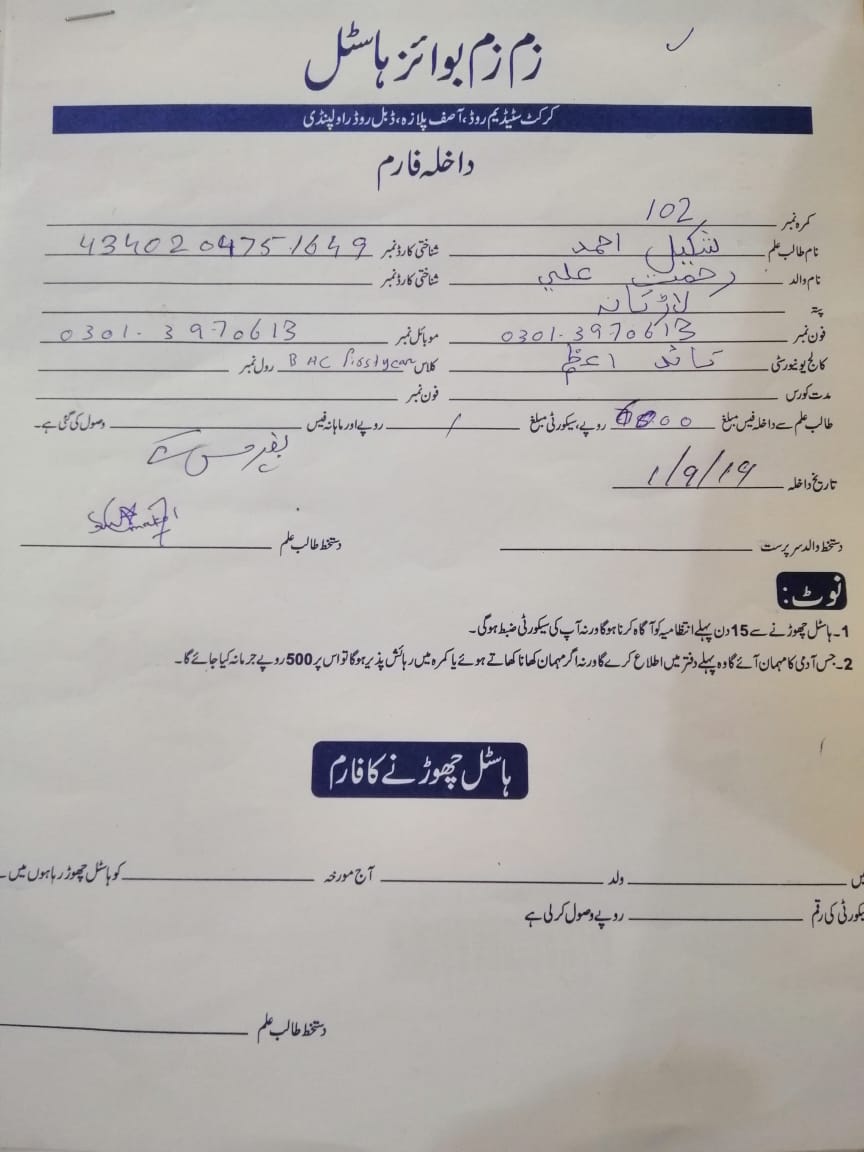 زم زم بوائز ہاسٹل
کرکٹ سٹیڈیم روڈ، آصف پلازہ، ڈبل روڈ راولپنڈی
داخلہ فارم
کمرہ نمبر 102
نام طالب علم شکیل احمد شناختی کارڈ نمبر 4340204751649
نام والد رحمت علي شناختی کارڈ نمبر
پتہ لاڑکانہ
فون نمبر 0301-3970613 موبائل نمبر 0301-3970613
کالج یونیورسٹی قائد اعظم کلاس first year رول نمبر
مدت کورس فون نمبر
طالب علم سے داخلہ فیس مبلغ روپے، سیکورٹی مبلغ / روپے اور ماہانہ فیس وصول کی گئی ہے۔
بغیر میس کے
تاریخ داخلہ 1/9/19
دستخط والد سرپرست دستخط طالب علم
نوٹ:
1۔ ہاسٹل چھوڑنے سے 15 دن پہلے انتظامیہ کو آگاہ کرنا ہوگا ورنہ آپ کی سیکورٹی ضبط ہوگی۔
2۔ جس آدمی کا مہمان آئے گا وہ پہلے دفتر میں اطلاع کرے گا ورنہ اگر مہمان کھانا کھاتے ہوئے یا کمرہ میں رہائش پذیر ہوگا تو اس پر 500 روپے جرمانہ کیا جائے گا۔
ہاسٹل چھوڑنے کا فارم
میں ولد آج مورخہ کو ہاسٹل چھوڑ رہا ہوں میں۔
سیکورٹی کی رقم روپے وصول کر لی ہے
دستخط طالب علم